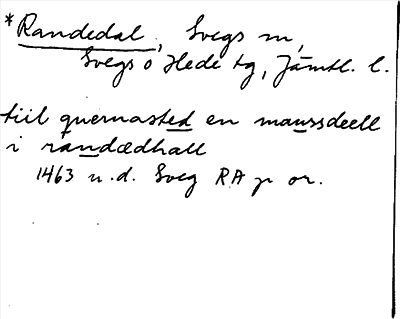 *Randedal, Svegs sn,
Svegs o Hede tg, Jämtl. l.
tiil quernasted en maussdeell
i randædhall
1463 u.d. Sveg RA p or.